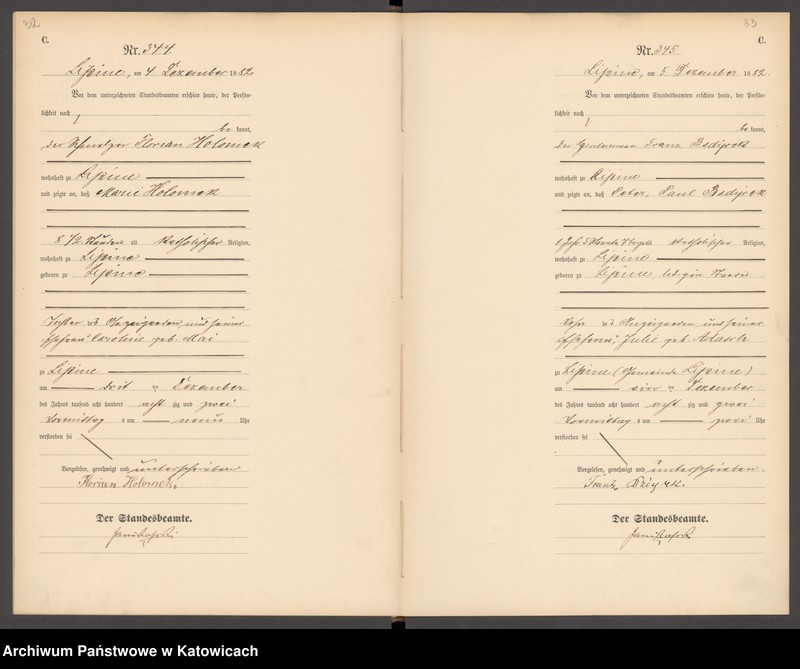 32
C.
Nr. 344.
Lipine, am 4 Dezember 1882
Vor dem unterzeichneten Standesbeamten erschien heute, der Persön-
lichkeit nach
be kannt,
der Florian Holomek
wohnhaft zu Lipine
und zeigte an, daß Marie Holomek
8 1/2 Stunden alt katholischer Religion,
wohnhaft zu Lipine
geboren zu Lipine
Tochter des Anzeigenden und seiner
Ehefrau Caroline geb. Mai
zu Lipine
am drit ten Dezember
des Jahres tausend acht hundert acht zig und zwei
Vormittag s um neun Uhr
verstorben sei
Vorgelesen, genehmigt und unterschrieben
Florian Holomek.
Der Standesbeamte.
33
C.
Nr. 345.
Lipine, am 5 Dezember 1882.
Vor dem unterzeichneten Standesbeamten erschien heute, der Persön-
lichkeit nach
be kannt,
der Franz
wohnhaft zu Lipine
und zeigte an, daß Paul
1 Jahr 5 Monate alt katholischer Religion,
wohnhaft zu Lipine
geboren zu Lipine
Sohn des Anzeigenden und seiner
Ehefrau, Julie geb.
zu Lipine (Gemeinde Lipine)
am vier ten Dezember
des Jahres tausend acht hundert acht zig und zwei
Vormittag s um zwei Uhr
verstorben sei
Vorgelesen, genehmigt und unterschrieben.
Franz
Der Standesbeamte.
Archiwum Państwowe w Katowicach